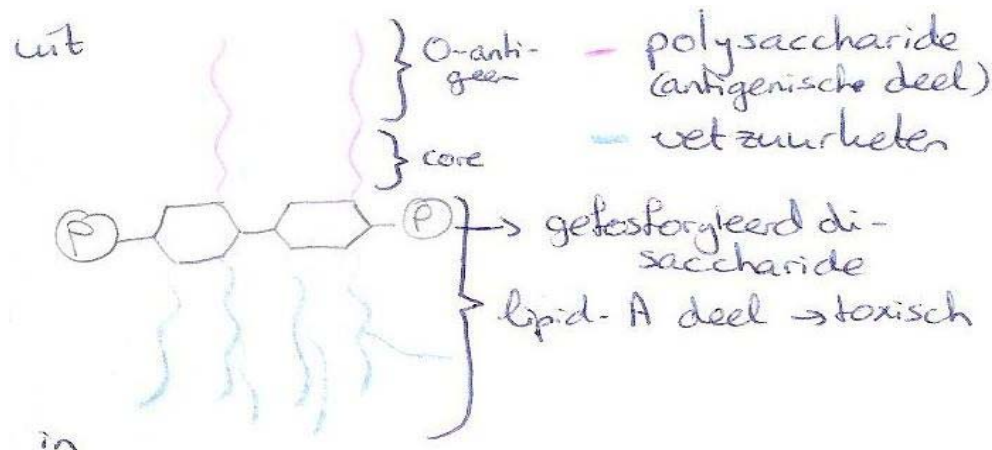 uit
O-anti-
geen
core
polysaccharide
(antigenische deel)
vetzuurketen
P
P
→ gefosforyleerd di-
saccharide
lipid-A deel → toxisch
in